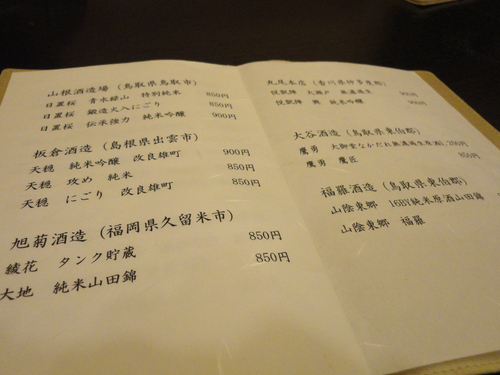 山根酒造場（鳥取県鳥取市）
日置桜 青水緑山 特別純米 850円
日置桜 鍛造火入にごり 850円
日置桜 伝承強力 純米吟醸 900円
板倉酒造（島根県出雲市）
天穏 純米吟醸 改良雄町 900円
天穏 攻め 純米 850円
天穏 にごり 改良雄町 850円
旭菊酒造（福岡県久留米市）
綾花 タンク貯蔵 850円
大地 純米山田錦 850円
丸尾本店（香川県仲多度郡）
悦凱陣 大瀬戸 無濾過生
悦凱陣 興 純米吟醸
大谷酒造（鳥取県東伯郡）
鷹勇 大御堂なかだれ無濾過生原酒
鷹勇 鷹匠 850円
福羅酒造（鳥取県東伯郡）
山陰東郷 16BY純米原酒山田錦
山陰東郷 福羅